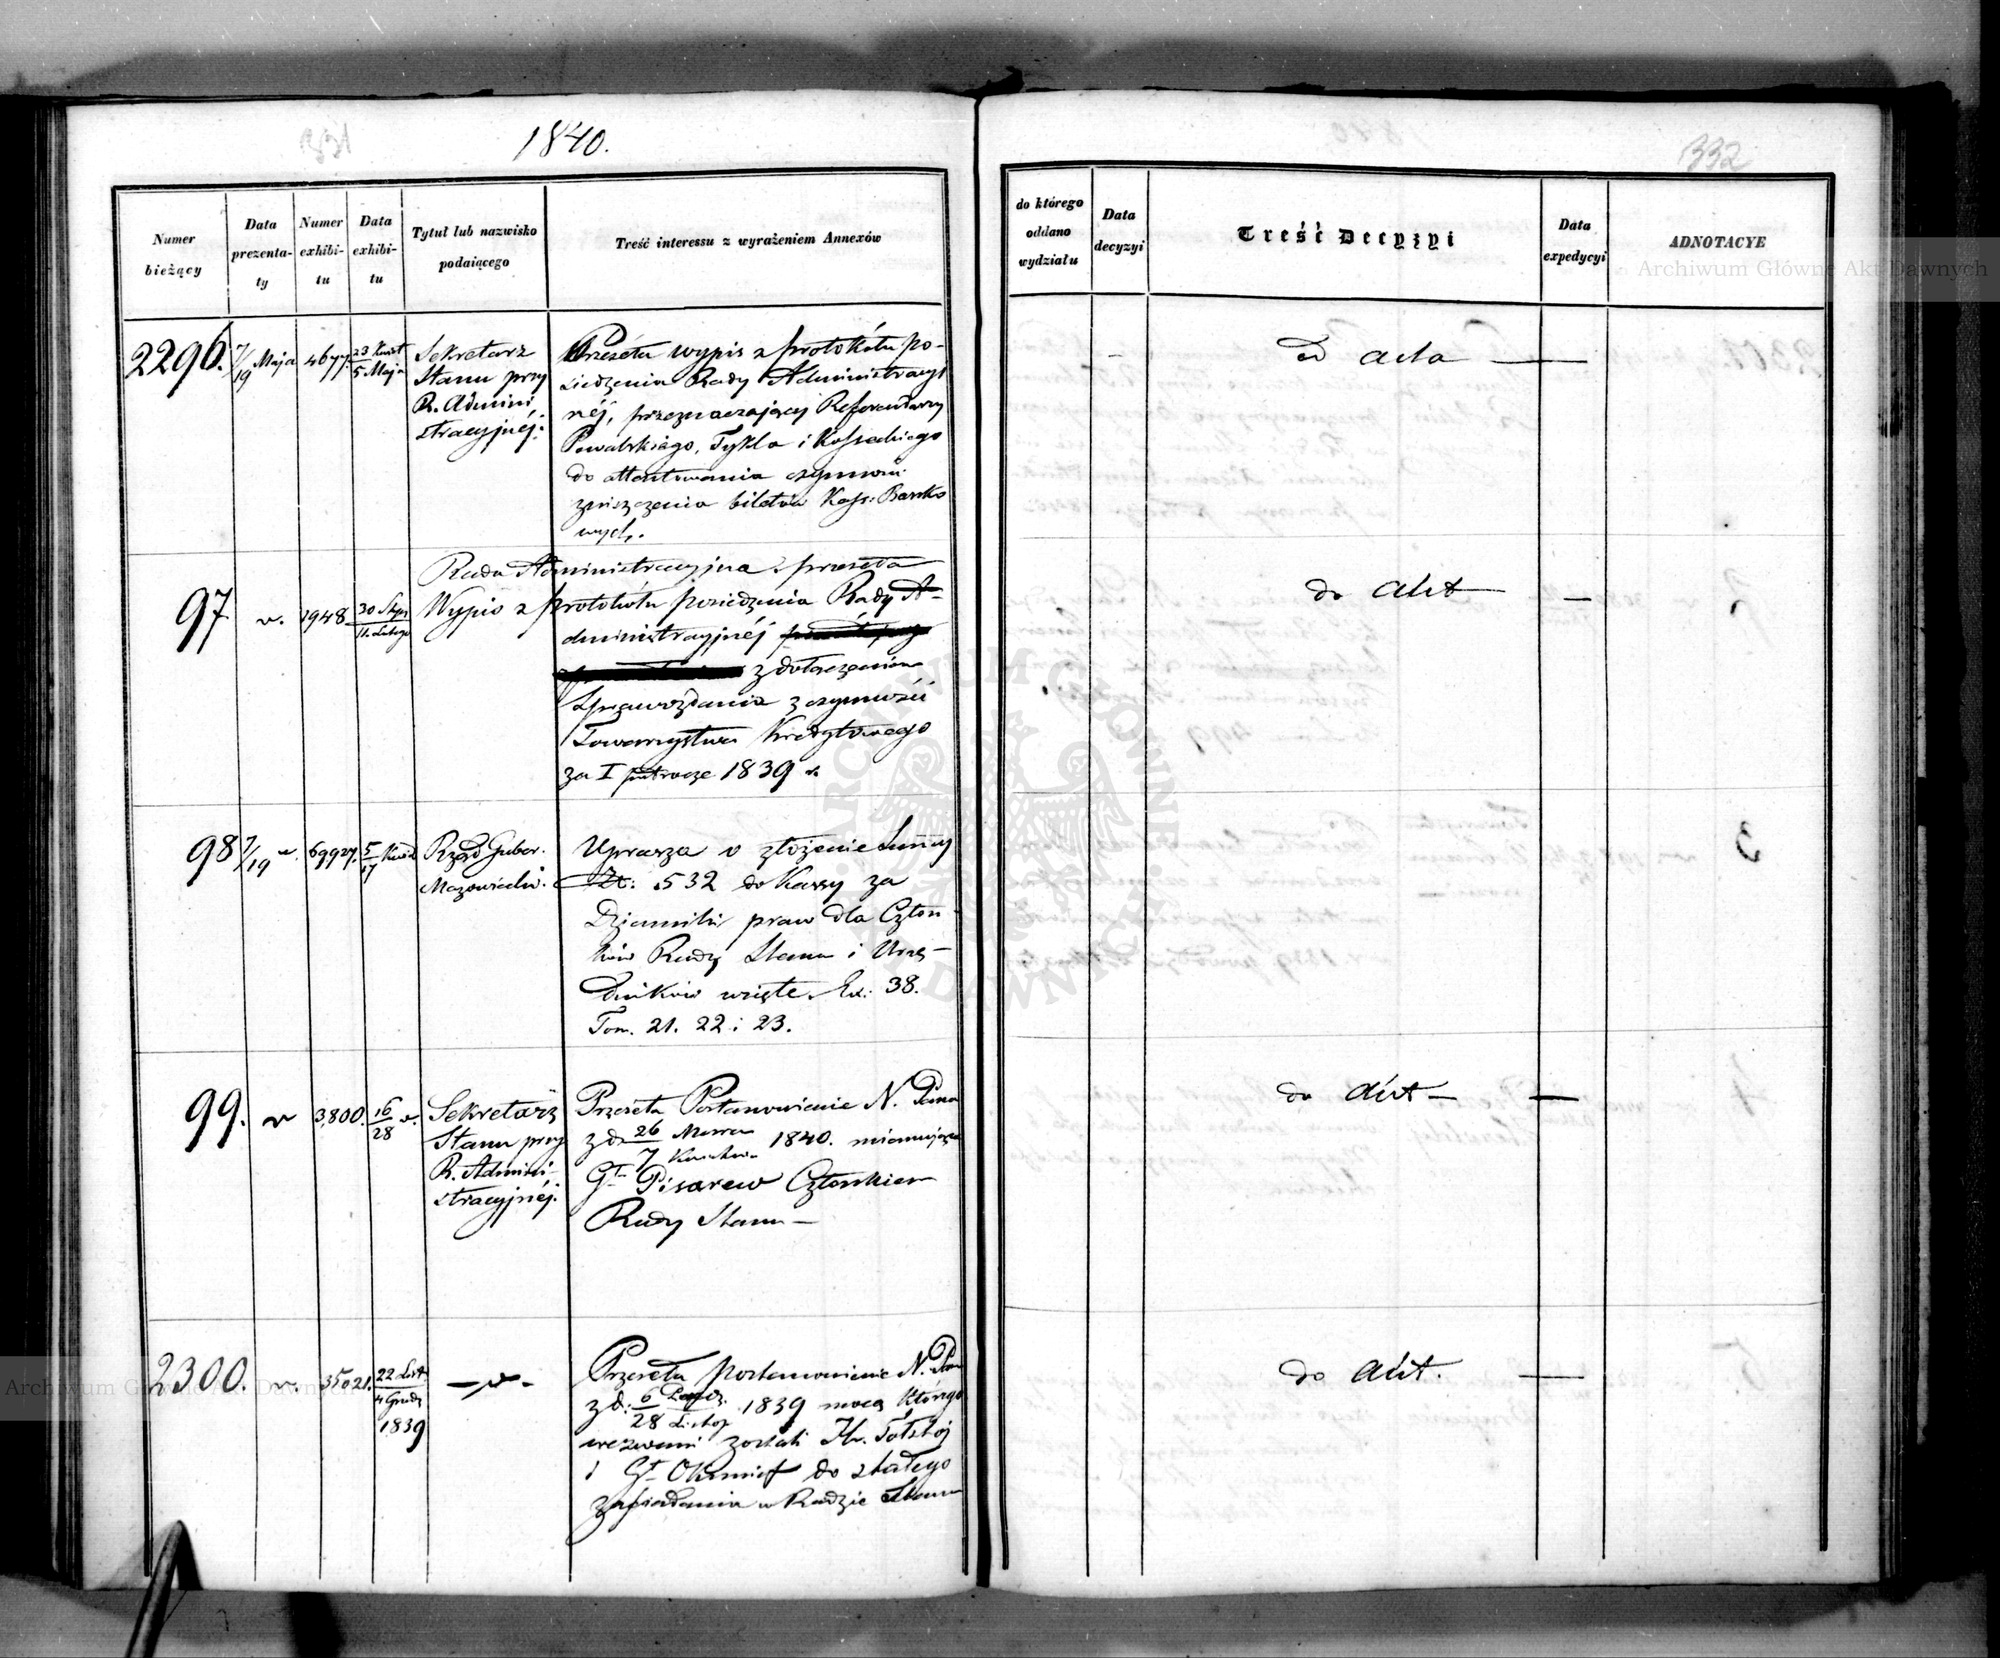 331
1840.
332
Numer bieżący
Data prezenta-ty
Numer exhibi-tu
Data exhibi-tu
Tytuł lub nazwisko podaiącego
Treść interessu z wyrażeniem Annexów
do którego oddano wydziału
Data decyzyi
Treść Decyzyi
Data expedycyi
ADNOTACYE
2296. 7/19 Maja 4677. 23 Kwiet / 5 Maja
Sekretarz
Stanu przy
R. Admini
stracyjnéj.
Przeséła wypis z protokółu po-
siedzenia Rady Administracyi
néj, przeznaczający Referendarzy
Powalskiego, Tykla i Kosseckiego
do attentowania czynności
zniszczenia biletów Kass: Banko
wych.
ad acta —
97 v. 1948 30 Stycz / 11 Lutego
Rada Administracyjna przeseła
Wypis z protokółu posiedzenia Rady A-
dministracyjnéj
z dołączeniem
Sprawozdania z czynności
Towarzystwa Kredytowego
za I półrocze 1839 r.
do akt —
98 7/19 v. 69927. 5/17 Kwiet
Rząd Guber.
Mazowiecki.
Uprasza o złożenie Summy
Zł: 532 do Kassy za
Dzienniki praw dla Człon-
ków Rady Stanu i Urzę-
dników wzięte. Ex: 38.
Tom. 21. 22 i 23.
99. v 3,800. 16/28 v.
Sekretarz
Stanu przy
R. Admini-
stracyjnéj.
Przeseła Postanowienie N. Pana
z d. 26 Marca / 7 Kwietnia 1840. mianujące
Gł. Pisarew Członkiem
Rady Stanu —
do akt —
2300. v. 35021. 22 List / 4 Grudz 1839
— v. —
Przeseła postanowienie N. Pana
z d: 6 Paźdz. / 28 Listop 1839 mocą którego
wezwani zostali Hr. Tołstoj
i Gł. Okunief do stałego
zasiadania w Radzie Stanu
do akt. —
Archiwum Główne Akt Dawnych
Archiwum Główne Akt Dawnych
ARCHIWUM GŁÓWNE AKT DAWNYCH